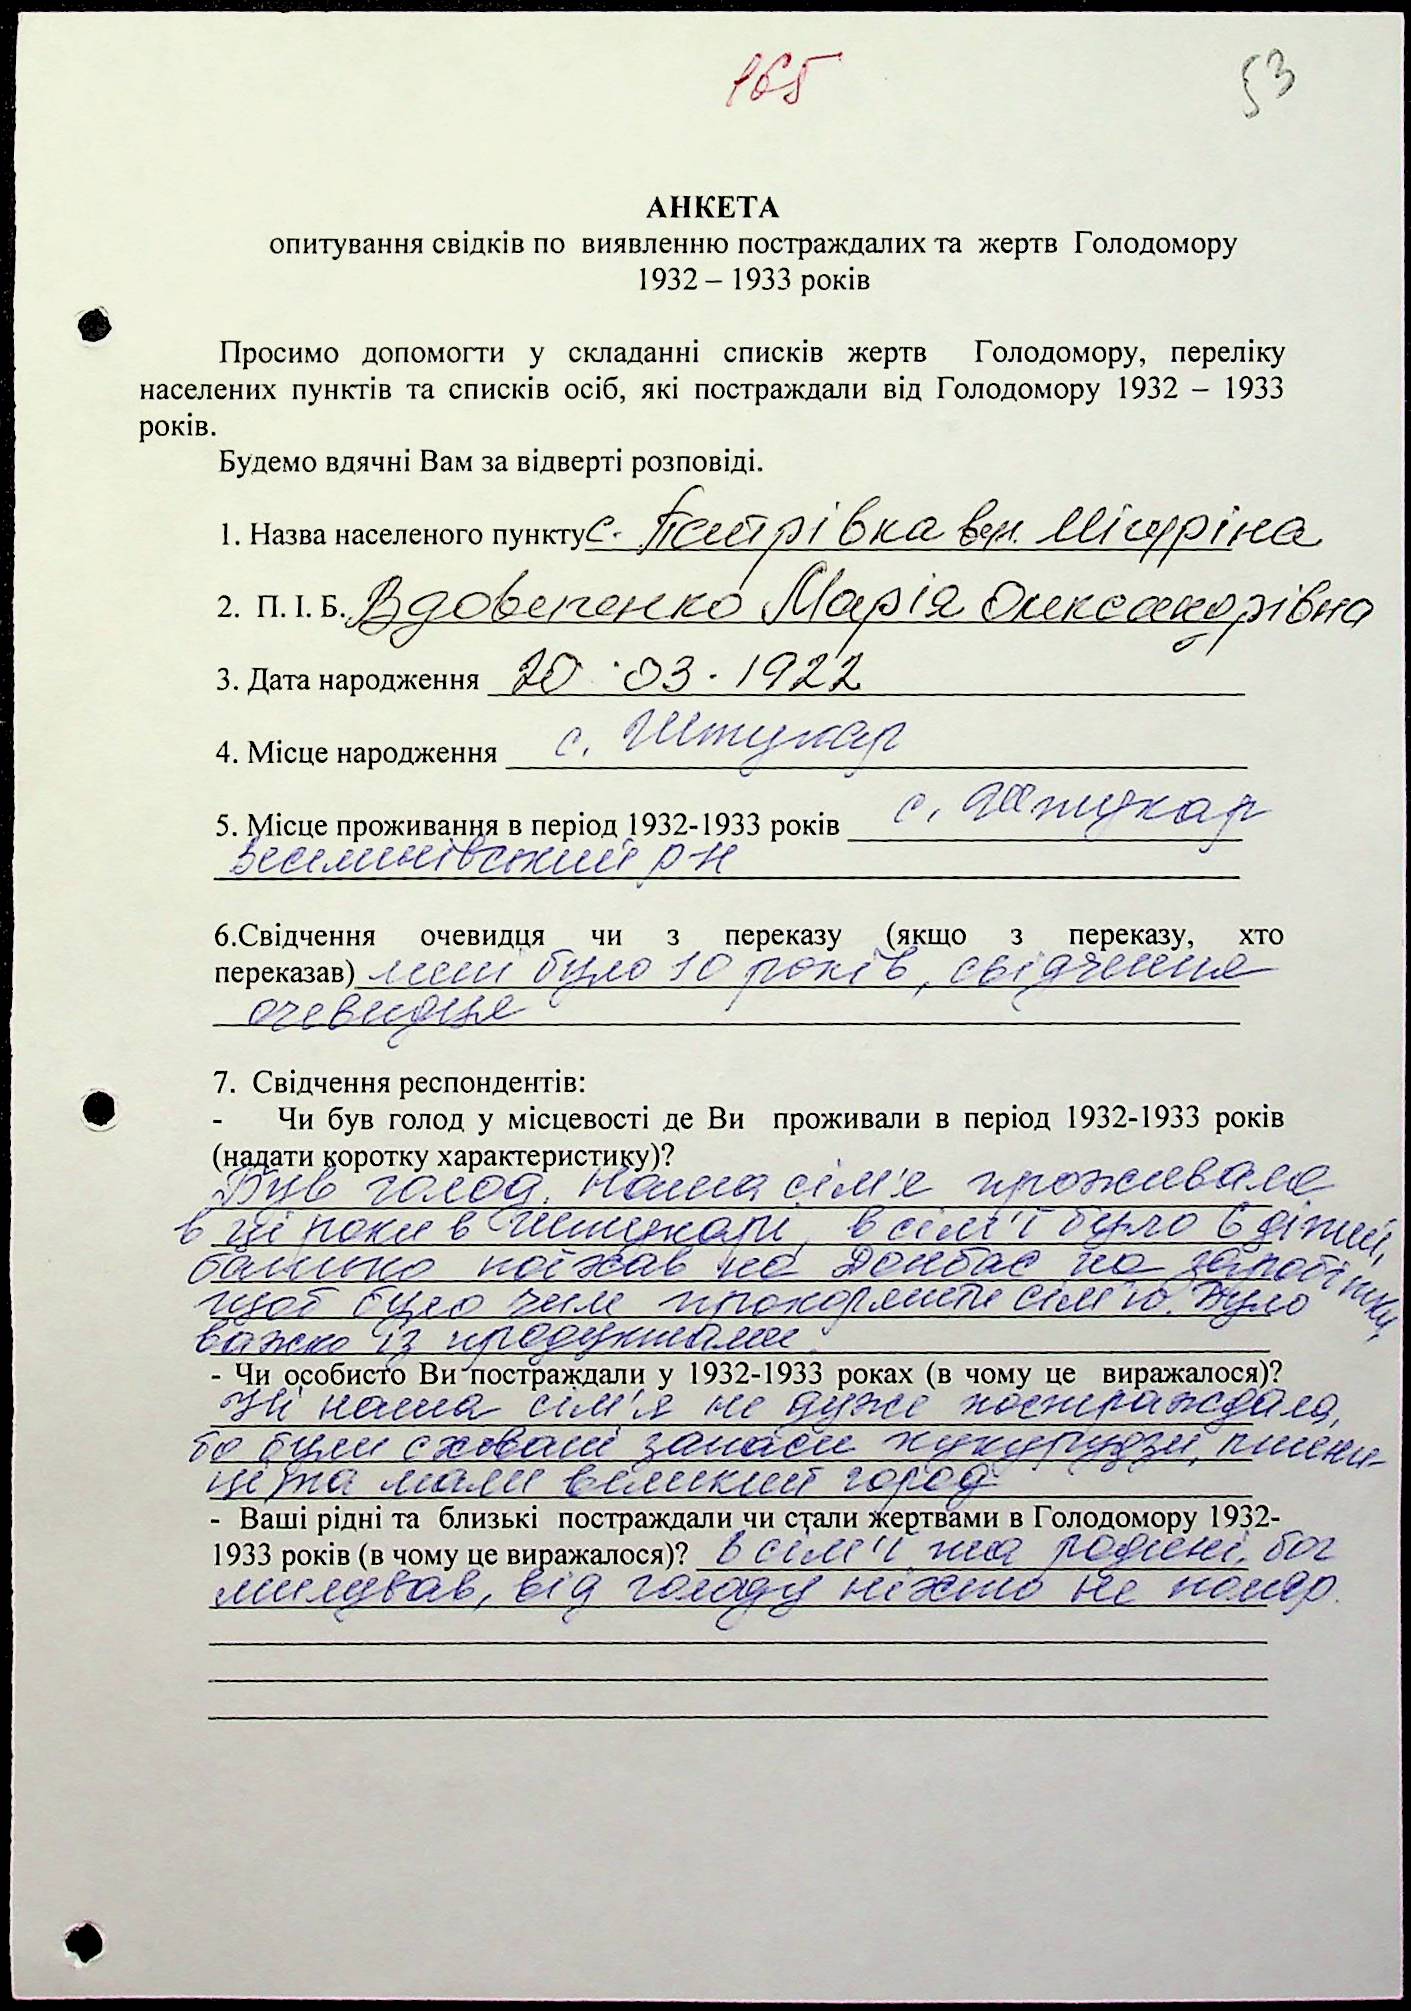 165
53
АНКЕТА
опитування свідків по виявленню постраждалих та жертв Голодомору
1932 – 1933 років
Просимо допомогти у складанні списків жертв Голодомору, переліку
населених пунктів та списків осіб, які постраждали від Голодомору 1932 – 1933
років.
Будемо вдячні Вам за відверті розповіді.
1. Назва населеного пункту с. Петрівка вул. Мічуріна
2. П. І. Б. Вдовиченко Марія Олександрівна
3. Дата народження 20 . 03 . 1922
4. Місце народження с. Штукар
5. Місце проживання в період 1932-1933 років с. Штукар
р-н
6.Свідчення очевидця чи з переказу (якщо з переказу, хто
переказав) мені було 10 років, свідчення
очевидця
7. Свідчення респондентів:
- Чи був голод у місцевості де Ви проживали в період 1932-1933 років
(надати коротку характеристику)?
Був голод. Наша сім'я проживала
в ці роки в Штукарі, в сім'ї було 6 дітей,
батько поїхав на Донбас на заробітки,
щоб було чим прокормити сім'ю. Було
важко із продуктами.
- Чи особисто Ви постраждали у 1932-1933 роках (в чому це виражалося)?
Ні наша сім'я не дуже постраждала,
бо були сховані запаси кукурудзи, пшени-
ці та мали великий город
- Ваші рідні та близькі постраждали чи стали жертвами в Голодомору 1932-
1933 років (в чому це виражалося)? в сім'ї та родині, бог
милував, від голоду ніхто не помер.